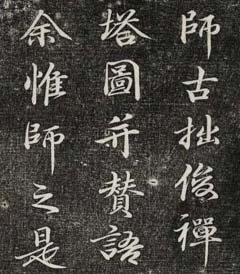 師古拙俊禪
塔圖并贊語
余惟師之是